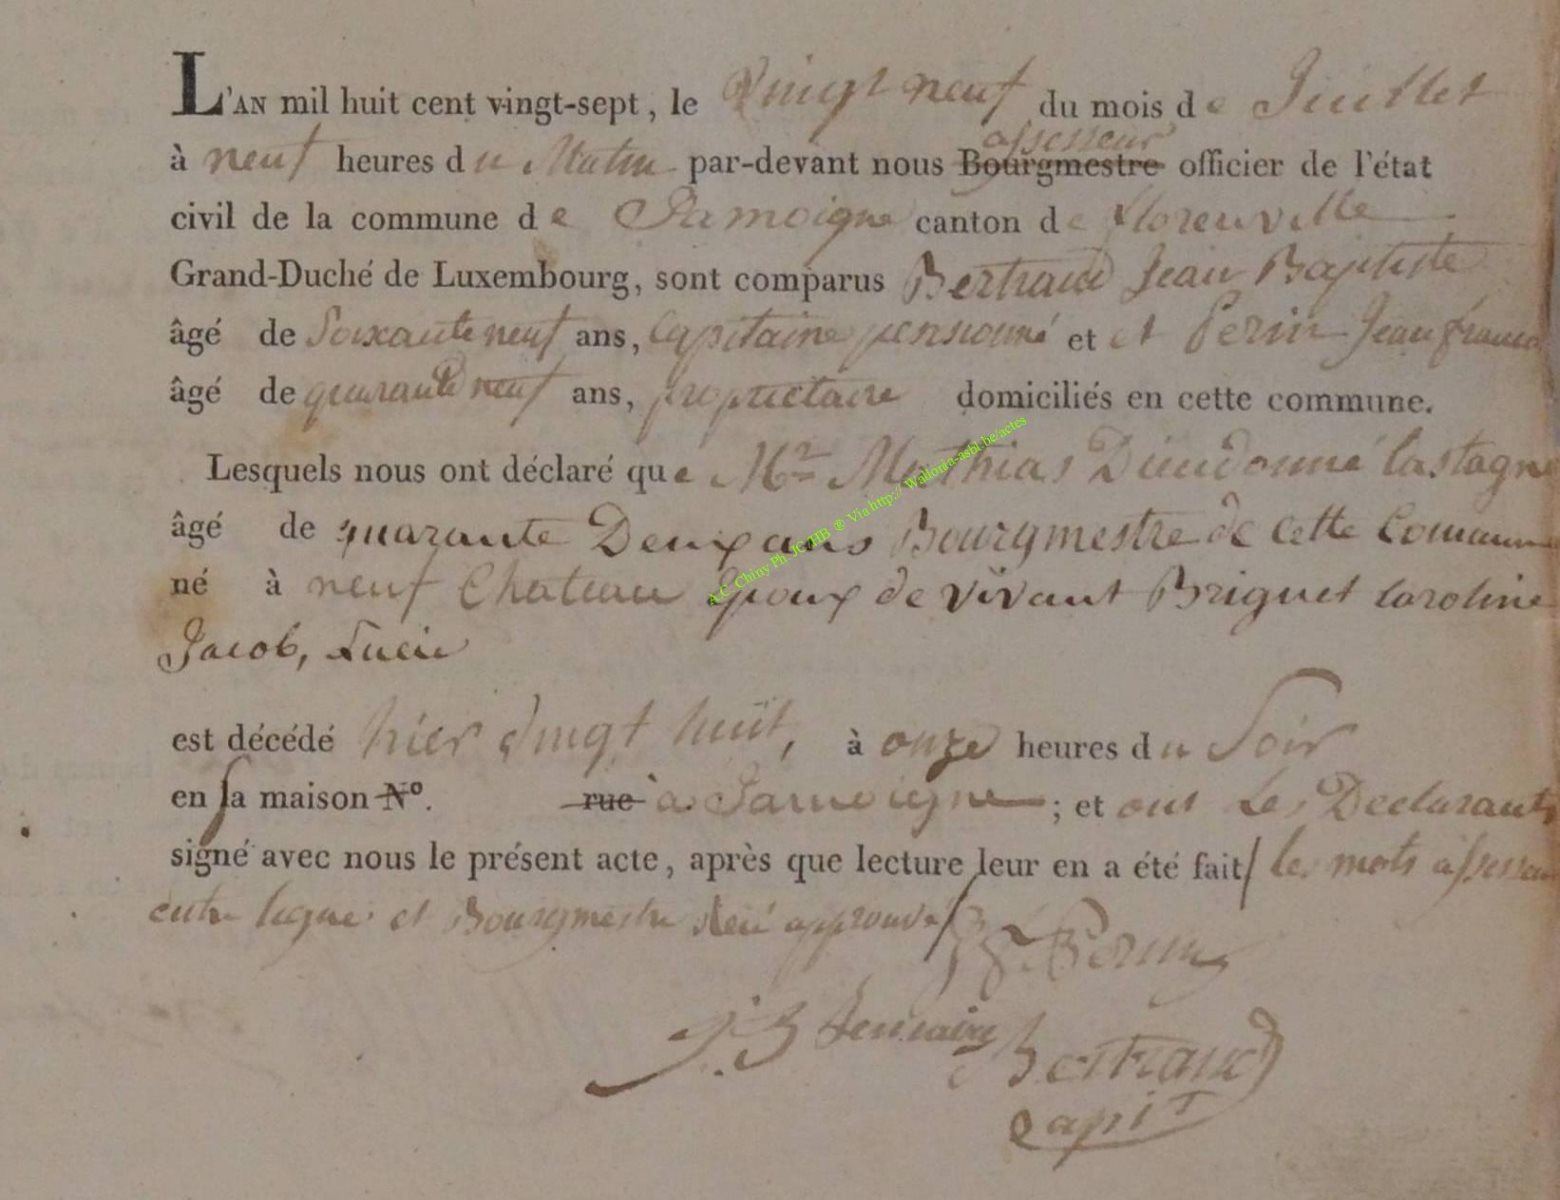 L'AN mil huit cent vingt-sept, le Vingt neuf du mois de Juillet
assesseur
à neuf heures du Matin par-devant nous Bourgmestre officier de l'état
civil de la commune de Jamoigne canton de florenville
Grand-Duché de Luxembourg, sont comparus Bertrand Jean Baptiste
âgé de Soixante neuf ans, Capitaine pensionné et et Perin Jean françois
âgé de quarante neuf ans, propriétaire domiciliés en cette commune.
Lesquels nous ont déclaré que Mr Mathias Dieudonné Castagne
âgé de quarante Deux ans Bourgmestre de cette Commune
né à neuf Chateau Epoux de vivant Briquet Caroline
Jacob, Lucie
est décédé hier vingt huit, à onze heures du Soir
en sa maison N°. rue à Jamoigne ; et ont Les Declarants
signé avec nous le présent acte, après que lecture leur en a été fait/ les mots assesseur
entre lignes et Bourgmestre approuvé/
Perin
J. B. Bertrand
Capit
A.C. Chiny Ph JC HB ® Via http://Wallonia-asbl.be/actes